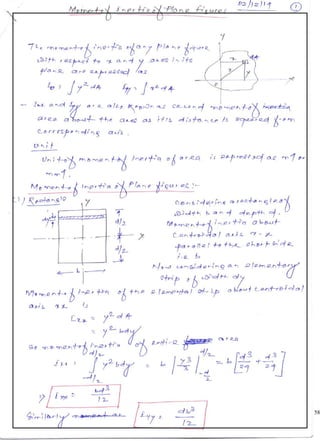 02/12/19
①
Moment of Inertia of Plane figures
The moment of inertia of any plane figure
with respect to x and y axes in its
plane are expressed as
Ixx = ∫ y² dA Iyy = ∫ x² dA
y
dA
x
y
x
Ixx and Iyy are also known as second moment of inertia
area about the axes as it is distance is squared from
corresponding axis.
Unit
Unit of moment of inertia of area is expressed as m⁴ or
mm⁴.
Moment of Inertia of Plane figures:-
(1) Rectangle
y
d/2
d/2
b
Considering a rectangle of
width b and depth d.
Moment of inertia about
Centroidal axis x-x
parallel to the short side
i.e b
Now considering an elementary
strip of width dy
Moment of Inertia of the elemental strip about centroidal
axis xx is
Ixx = y² dA
= y² bdy
So moment of inertia of entire area
Ixx = ∫ y² bdy = b [y³/3] = b [d³/24 + d³/24]
d/2
-d/2
d/2
-d/2
⇒ Ixx = bd³/12
Similarly
Iyy = db³/12